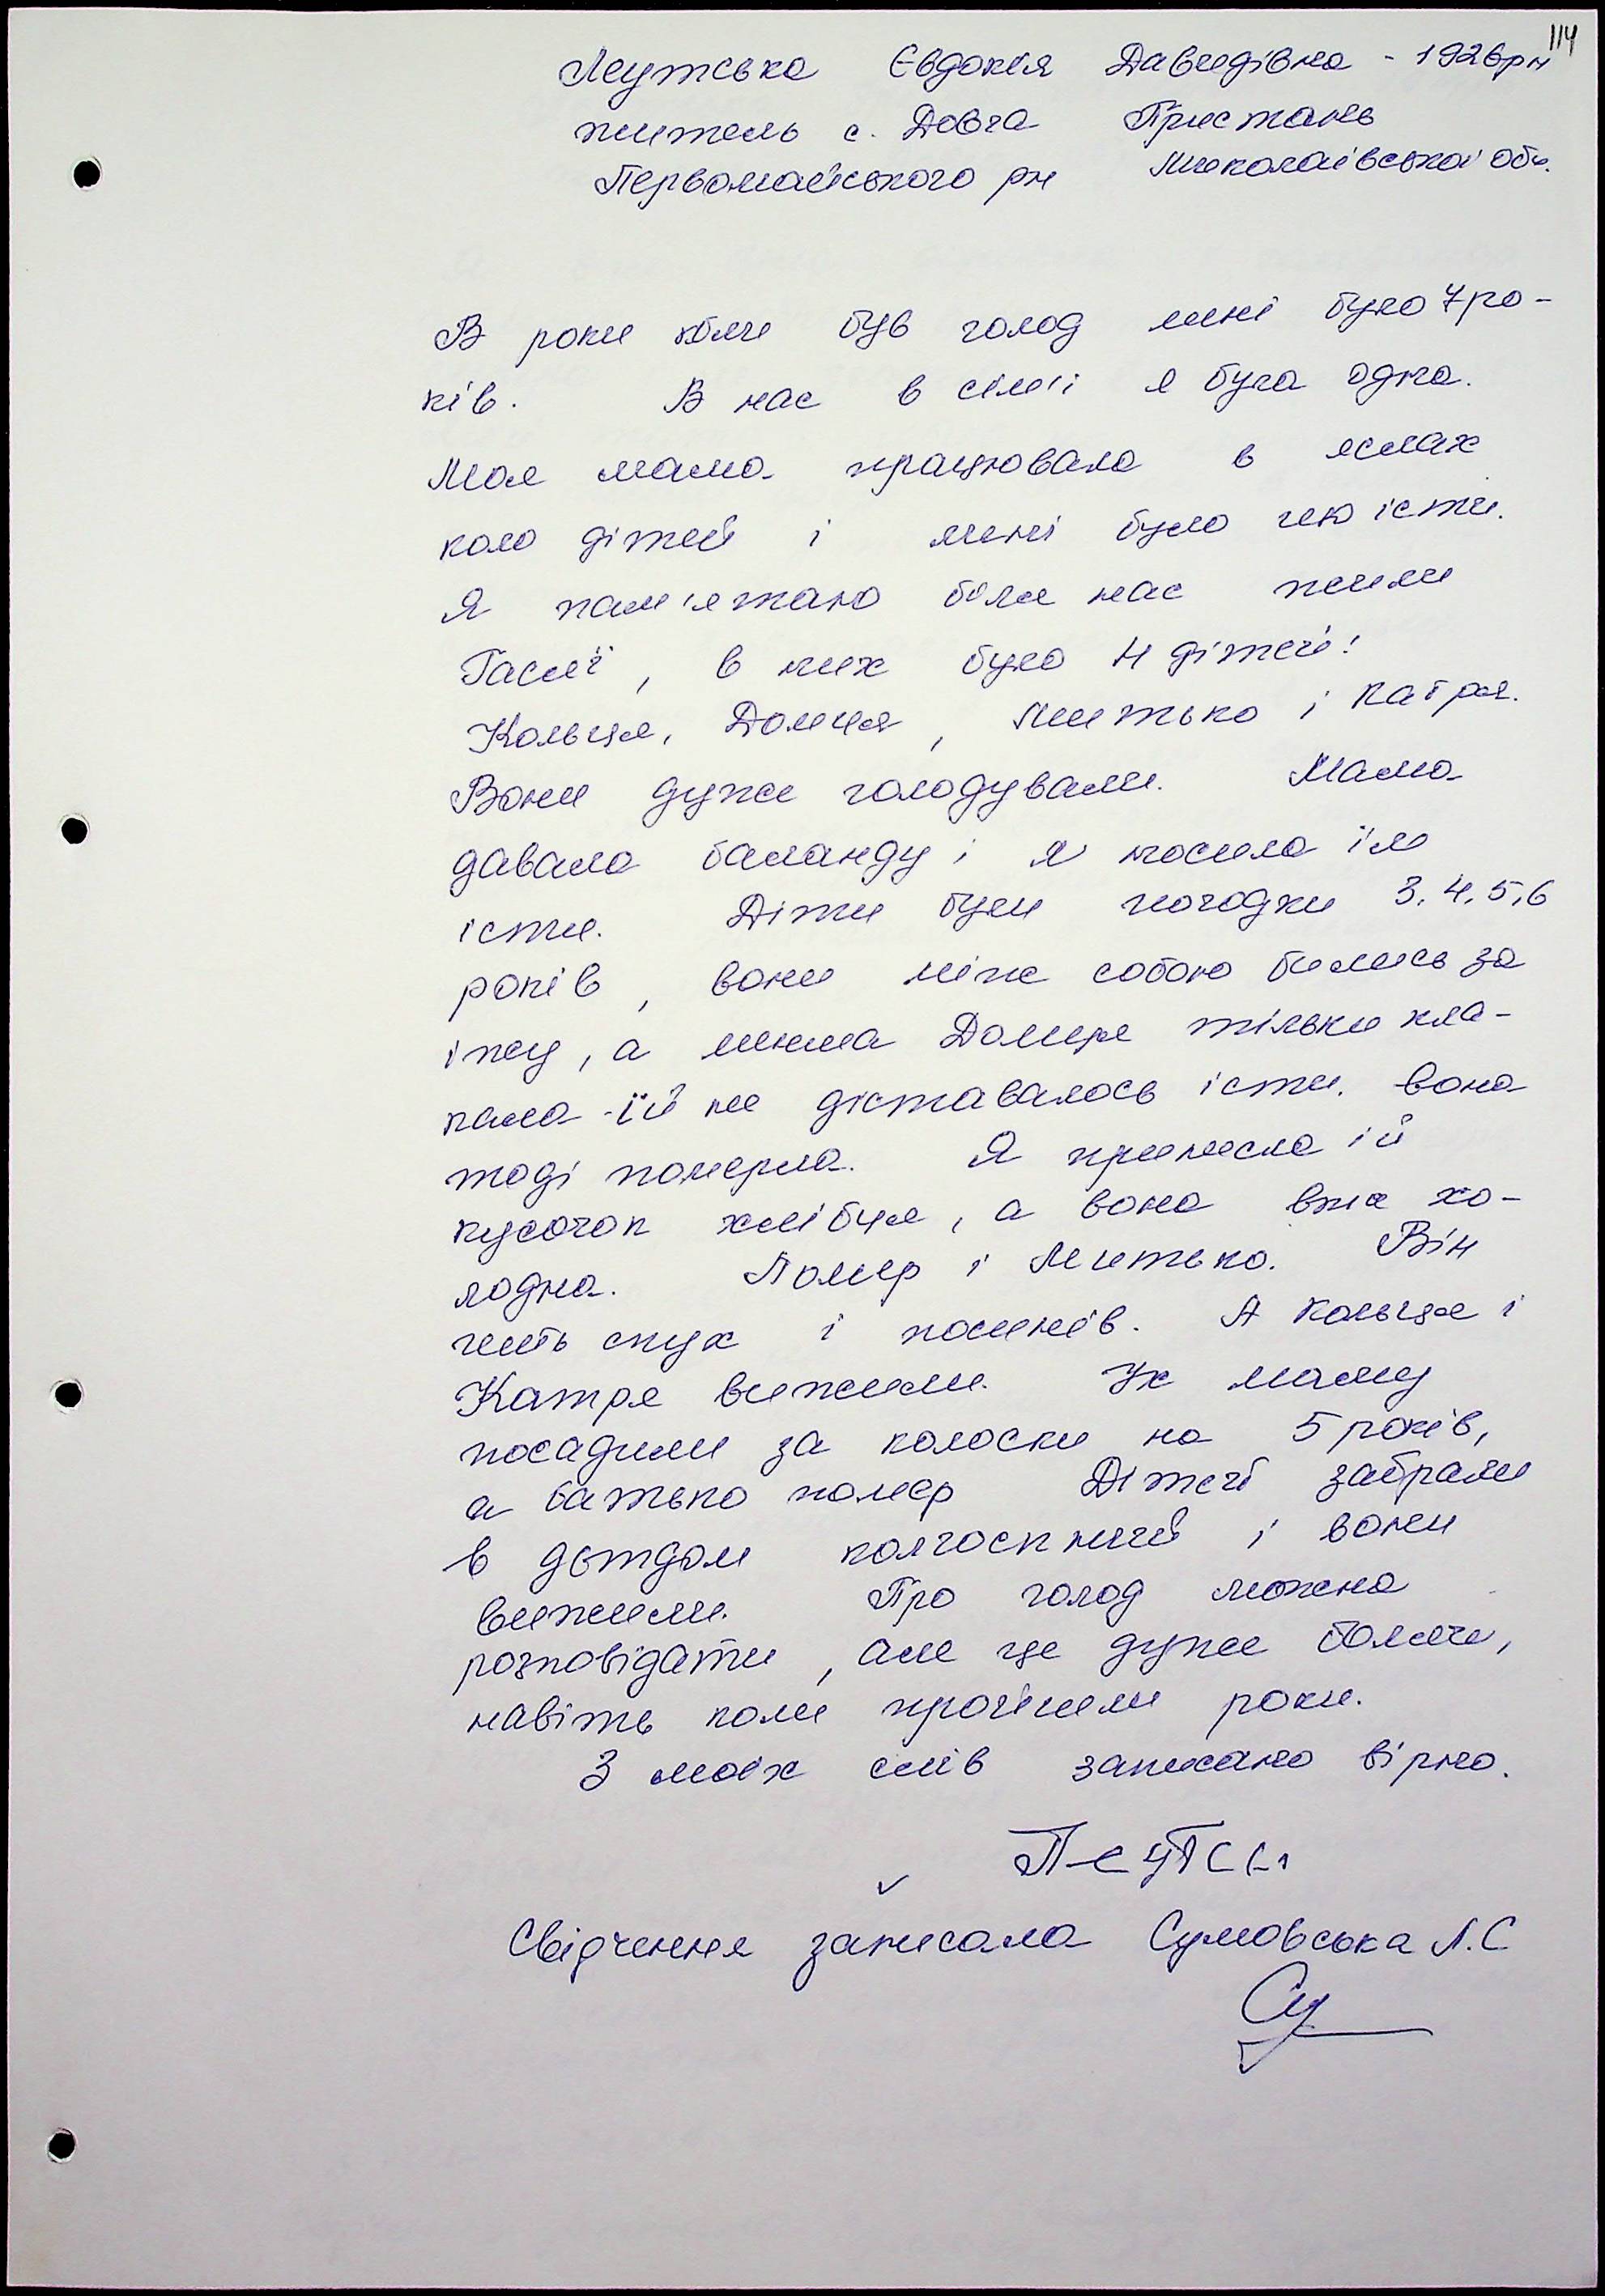 114
Пеутська Євдокія Давидівна - 1926рн
житель с. Довга Пристань
Первомайського рн Миколаївської обл.
В роки коли був голод мені було 7 ро-
ків. В нас в сімї я була одна.
Моя мама працювала в яслах
коло дітей і мені було що їсти.
Я пам'ятаю біля нас жили
Гасюї, в них було 4 дітей:
Кольця, Домця, Митько і Катря.
Вони дуже голодували. Мама
давала баланду і я носила їм
їсти. Діти були погодки 3, 4, 5, 6
років, вони між собою бились за
їжу, а менша Домця тільки пла-
кала - їй не діставалось їсти. Вона
тоді померла. Я принесла їй
кусочок хлібця, а вона вже хо-
лодна. Помер і Митько. Він
чить спух і посинів. А Кольця і
Катря вижили. Їх маму
посадили за колоски на 5 років,
а батько помер Дітей забрали
в дєтдом колгоспний і вони
вижили. Про голод можна
розповідати, але це дуже боляче,
навіть коли пройшли роки.
З моїх слів записано вірно.
Свідчення записала Сумовська Л.С